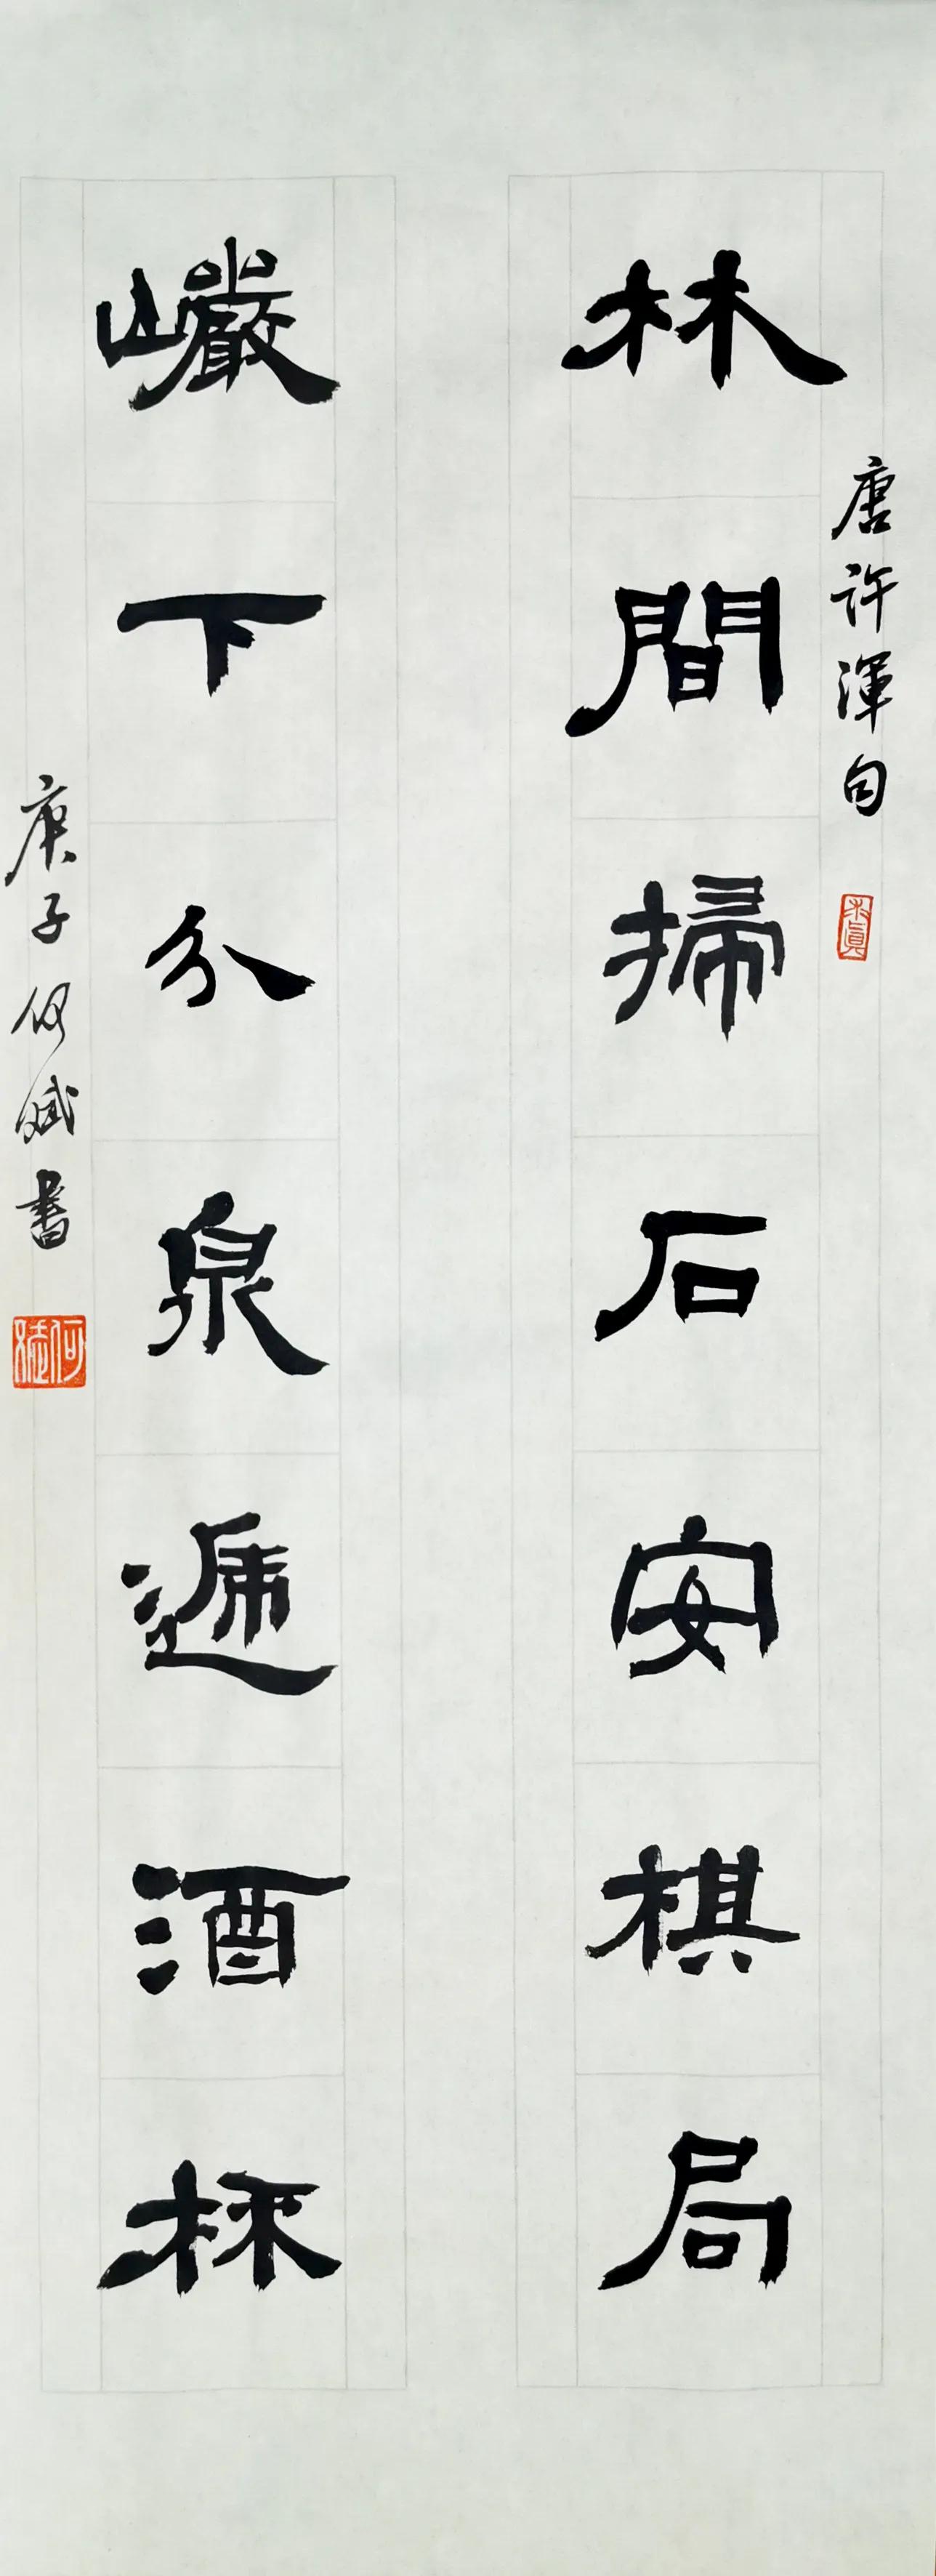 林間掃石安棋局
唐許渾句
巖下分泉遞酒杯
庚子何斌書